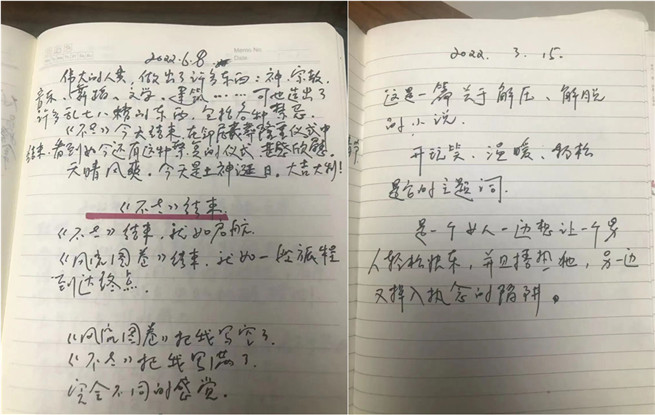 2022.6.8.
Memo No.
Date
伟大的人类，做出了许多东西：神、宗教、
音乐、舞蹈、文学、建筑……可也造出了
许多乱七八糟的东西，包括各种禁忌。
《不言》今天结束，在邻居家举隆重仪式中
结束，看到如今还有这种繁复的仪式，甚感欣慰。
天晴风爽。今天是土神诞日。大吉大利！
《不言》结束
《不言》结束，我如启航
《风流图卷》结束，我如一段旅程
到达终点。
《风流图卷》把我写空了，
《不言》把我写满了。
完全不同的感觉。
2022. 3. 15.
这是一篇关于解压、解脱
的小说。
开玩笑、温暖、轻松
是它的主题词。
是一个女人一边想让一个男
人轻松快乐，并且捂热他，另一边
又掉入执念的陷阱。